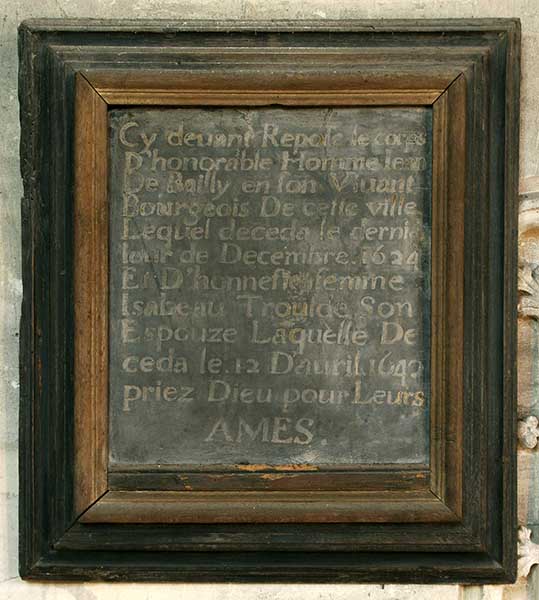 Cy deuant Repose le corps
D'honorable Homme Iean
De Bailly en son Viuant
Bourgeois De cette ville
Lequel deceda le dernie
Iour de Decembre. 1624
Et D'honneste femme
Isabeau Son
Espouze Laquelle De
ceda le. 12 D'auril.
priez Dieu pour Leurs
AMES.